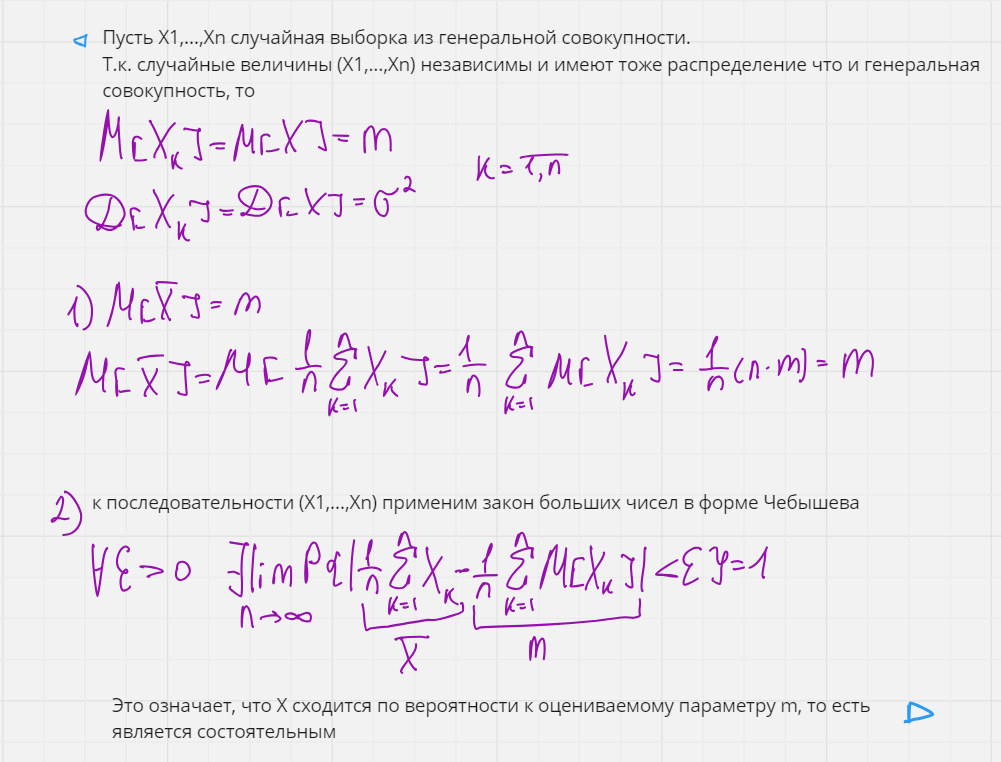 Пусть X1,...,Xn случайная выборка из генеральной совокупности.
Т.к. случайные величины (X1,...,Xn) независимы и имеют тоже распределение что и генеральная
совокупность, то
M[Xₖ] = M[X] = m
к = 1,n
D[Xₖ] = D[X] = σ²
1) M[X̅] = m
M[X̅] = M[1/n ∑ₖ₌₁ⁿ Xₖ] = 1/n ∑ₖ₌₁ⁿ M[Xₖ] = 1/n (n·m) = m
2) к последовательности (X1,...,Xn) применим закон больших чисел в форме Чебышева
∀ε > 0 ∃ lim n→∞ P{|1/n ∑ₖ₌₁ⁿ Xₖ - 1/n ∑ₖ₌₁ⁿ M[Xₖ]| < ε} = 1
X̅ m
Это означает, что X сходится по вероятности к оцениваемому параметру m, то есть
является состоятельным